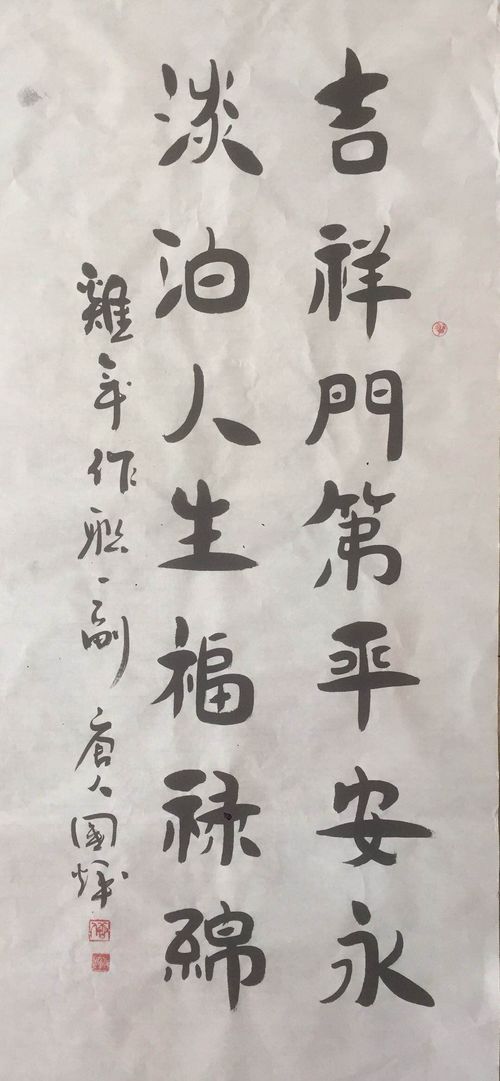 吉祥門第平安永
淡泊人生福禄綿
雞年作聯一副 唐人國輝